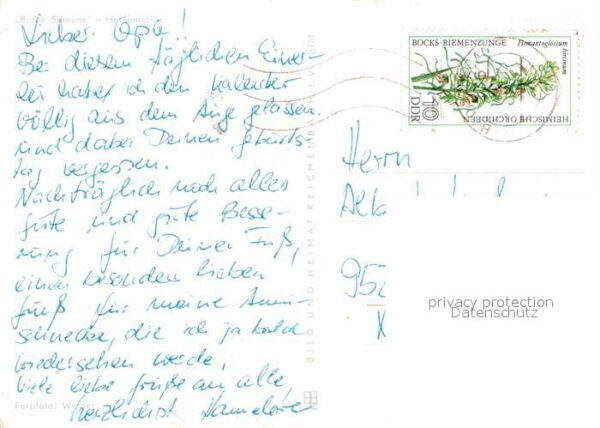 "Blaue Scheune" – H
Lieber Opa!!
Bei diesem täglichen Einer-
lei habe ich den Kalender
völlig aus dem Auge gelassen
und dabei Deinen Geburts-
tag vergessen.
Nachträglich noch alles
gute und gute Besse-
rung für Deinen Fuß,
einen besonders lieben
Gruß für meine
schnecke, die ich ja bald
wiedersehen werde,
Viele liebe Grüße an alle,
herzlichst Hannelore
Farbfoto: We
BILD UND HEIMAT REICHENBACH
BOCKS-RIEMENZUNGE
Himantoglossum
hircinum
HEIMISCHE ORCHIDEEN
10
DDR
Herrn
952
privacy protection
Datenschutz